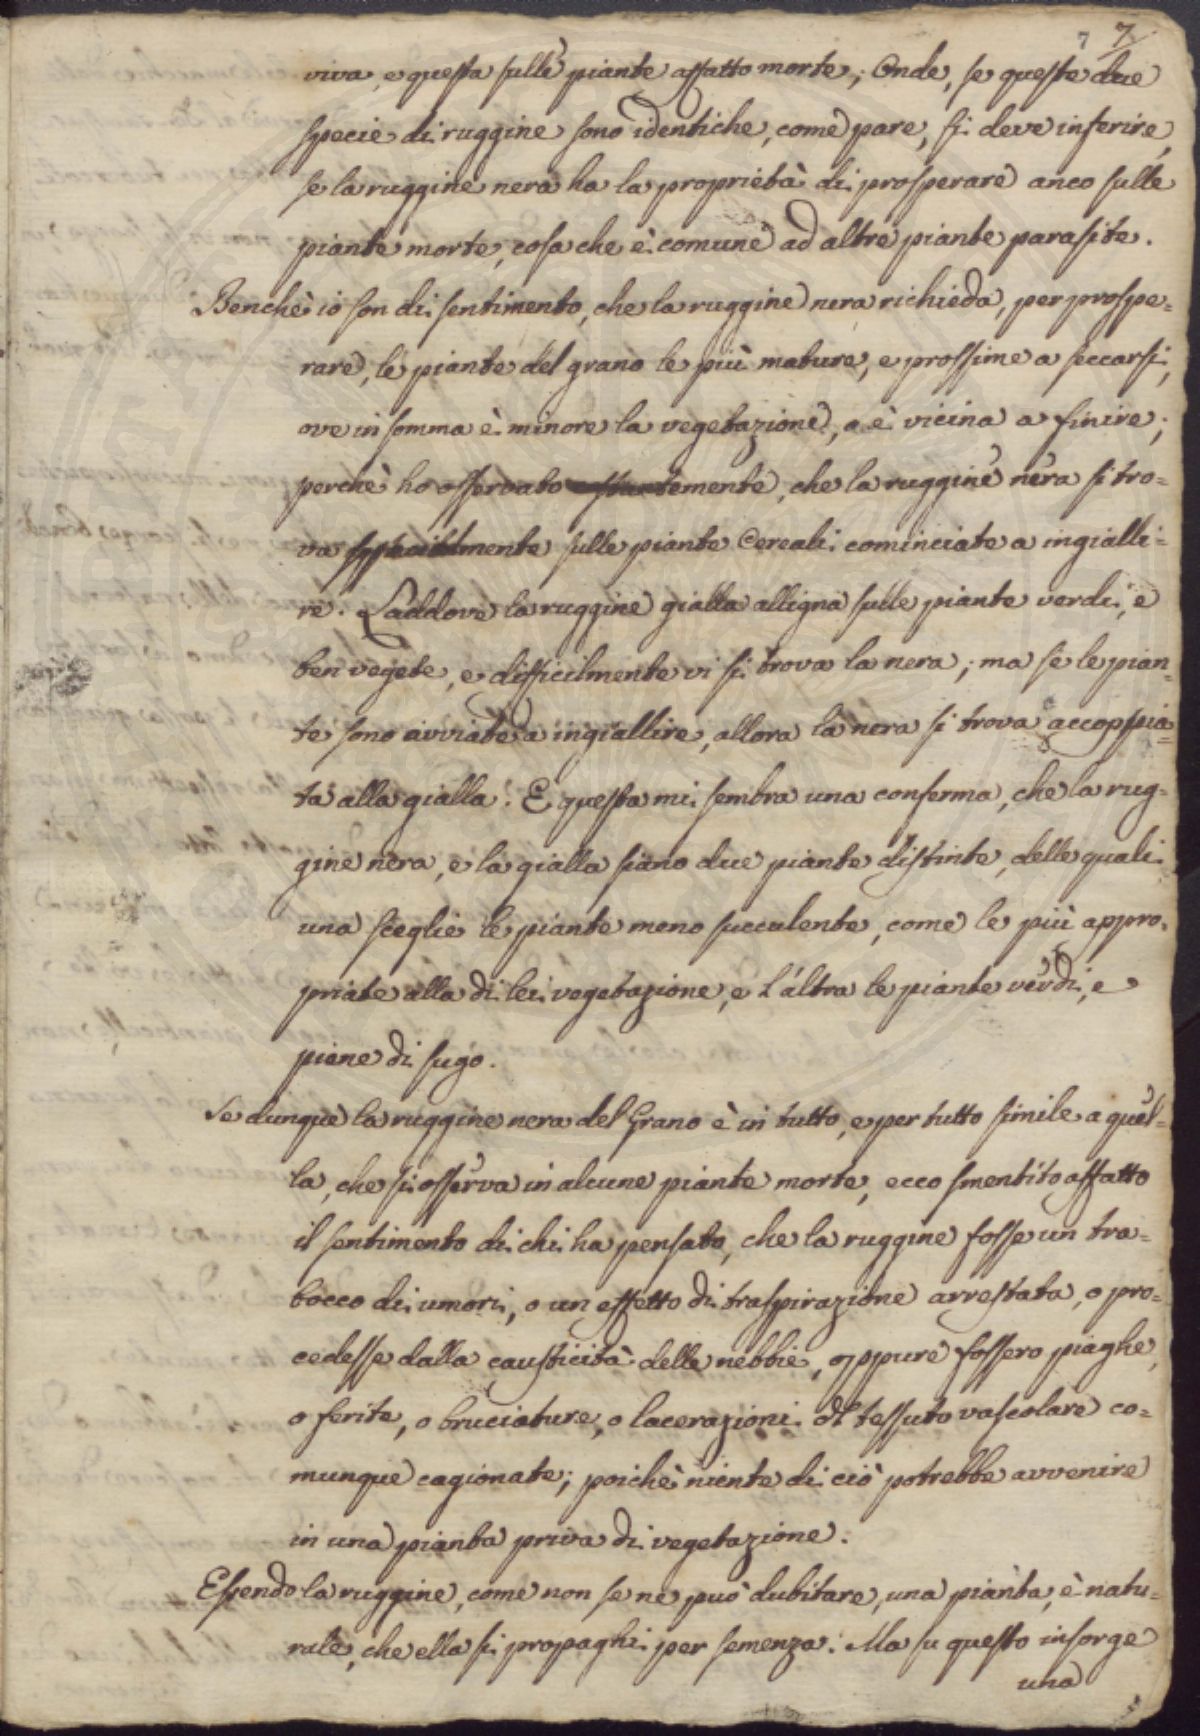 7 7
viva, e questa sulle piante affatto morte; Onde, se queste due
specie di ruggine sono identiche, come pare, si deve inferire,
se la ruggine nera ha la proprietà di prosperare anco sulle
piante morte, cosa che è comune ad altre piante parasite.
Benchè io son di sentimento, che la ruggine nera richieda, per prospe=
rare, le piante del grano le più mature, e prossime a seccarsi,
ove in somma è minore la vegetazione, o è vicina a finire;
perchè ho osservato temente, che la ruggine nera si tro=
va mente sulle piante Cereali cominciate a ingialli=
re. Laddove la ruggine gialla alligna sulle piante verdi, e
ben vegete, e difficilmente vi si trova la nera; ma se le pian=
te sono avviate a ingiallire, allora la nera si trova accoppia=
ta alla gialla. E questa mi sembra una conferma, che la rug=
gine nera, e la gialla siano due piante distinte, delle quali
una sceglie le piante meno succulente, come le più appro=
priate alla di lei vegetazione, e l'altra le piante verdi, e
piene di sugo.
Se dunque la ruggine nera del Grano è in tutto, e per tutto simile a quel=
la, che si osserva in alcune piante morte, ecco smentito affatto
il sentimento di chi ha pensato, che la ruggine fosse un tra=
bocco di umori, o un effetto di traspirazione arrestata, o pro=
cedesse dalla causticità delle nebbie, oppure fossero piaghe,
o ferite, o bruciature, o lacerazioni di tessuto vascolare co=
munque cagionate; poichè niente di ciò potrebbe avvenire
in una pianta priva di vegetazione.
Essendo la ruggine, come non se ne può dubitare, una pianta, è natu=
rale, che ella si propaghi per semenza. Ma su questo insorge
una